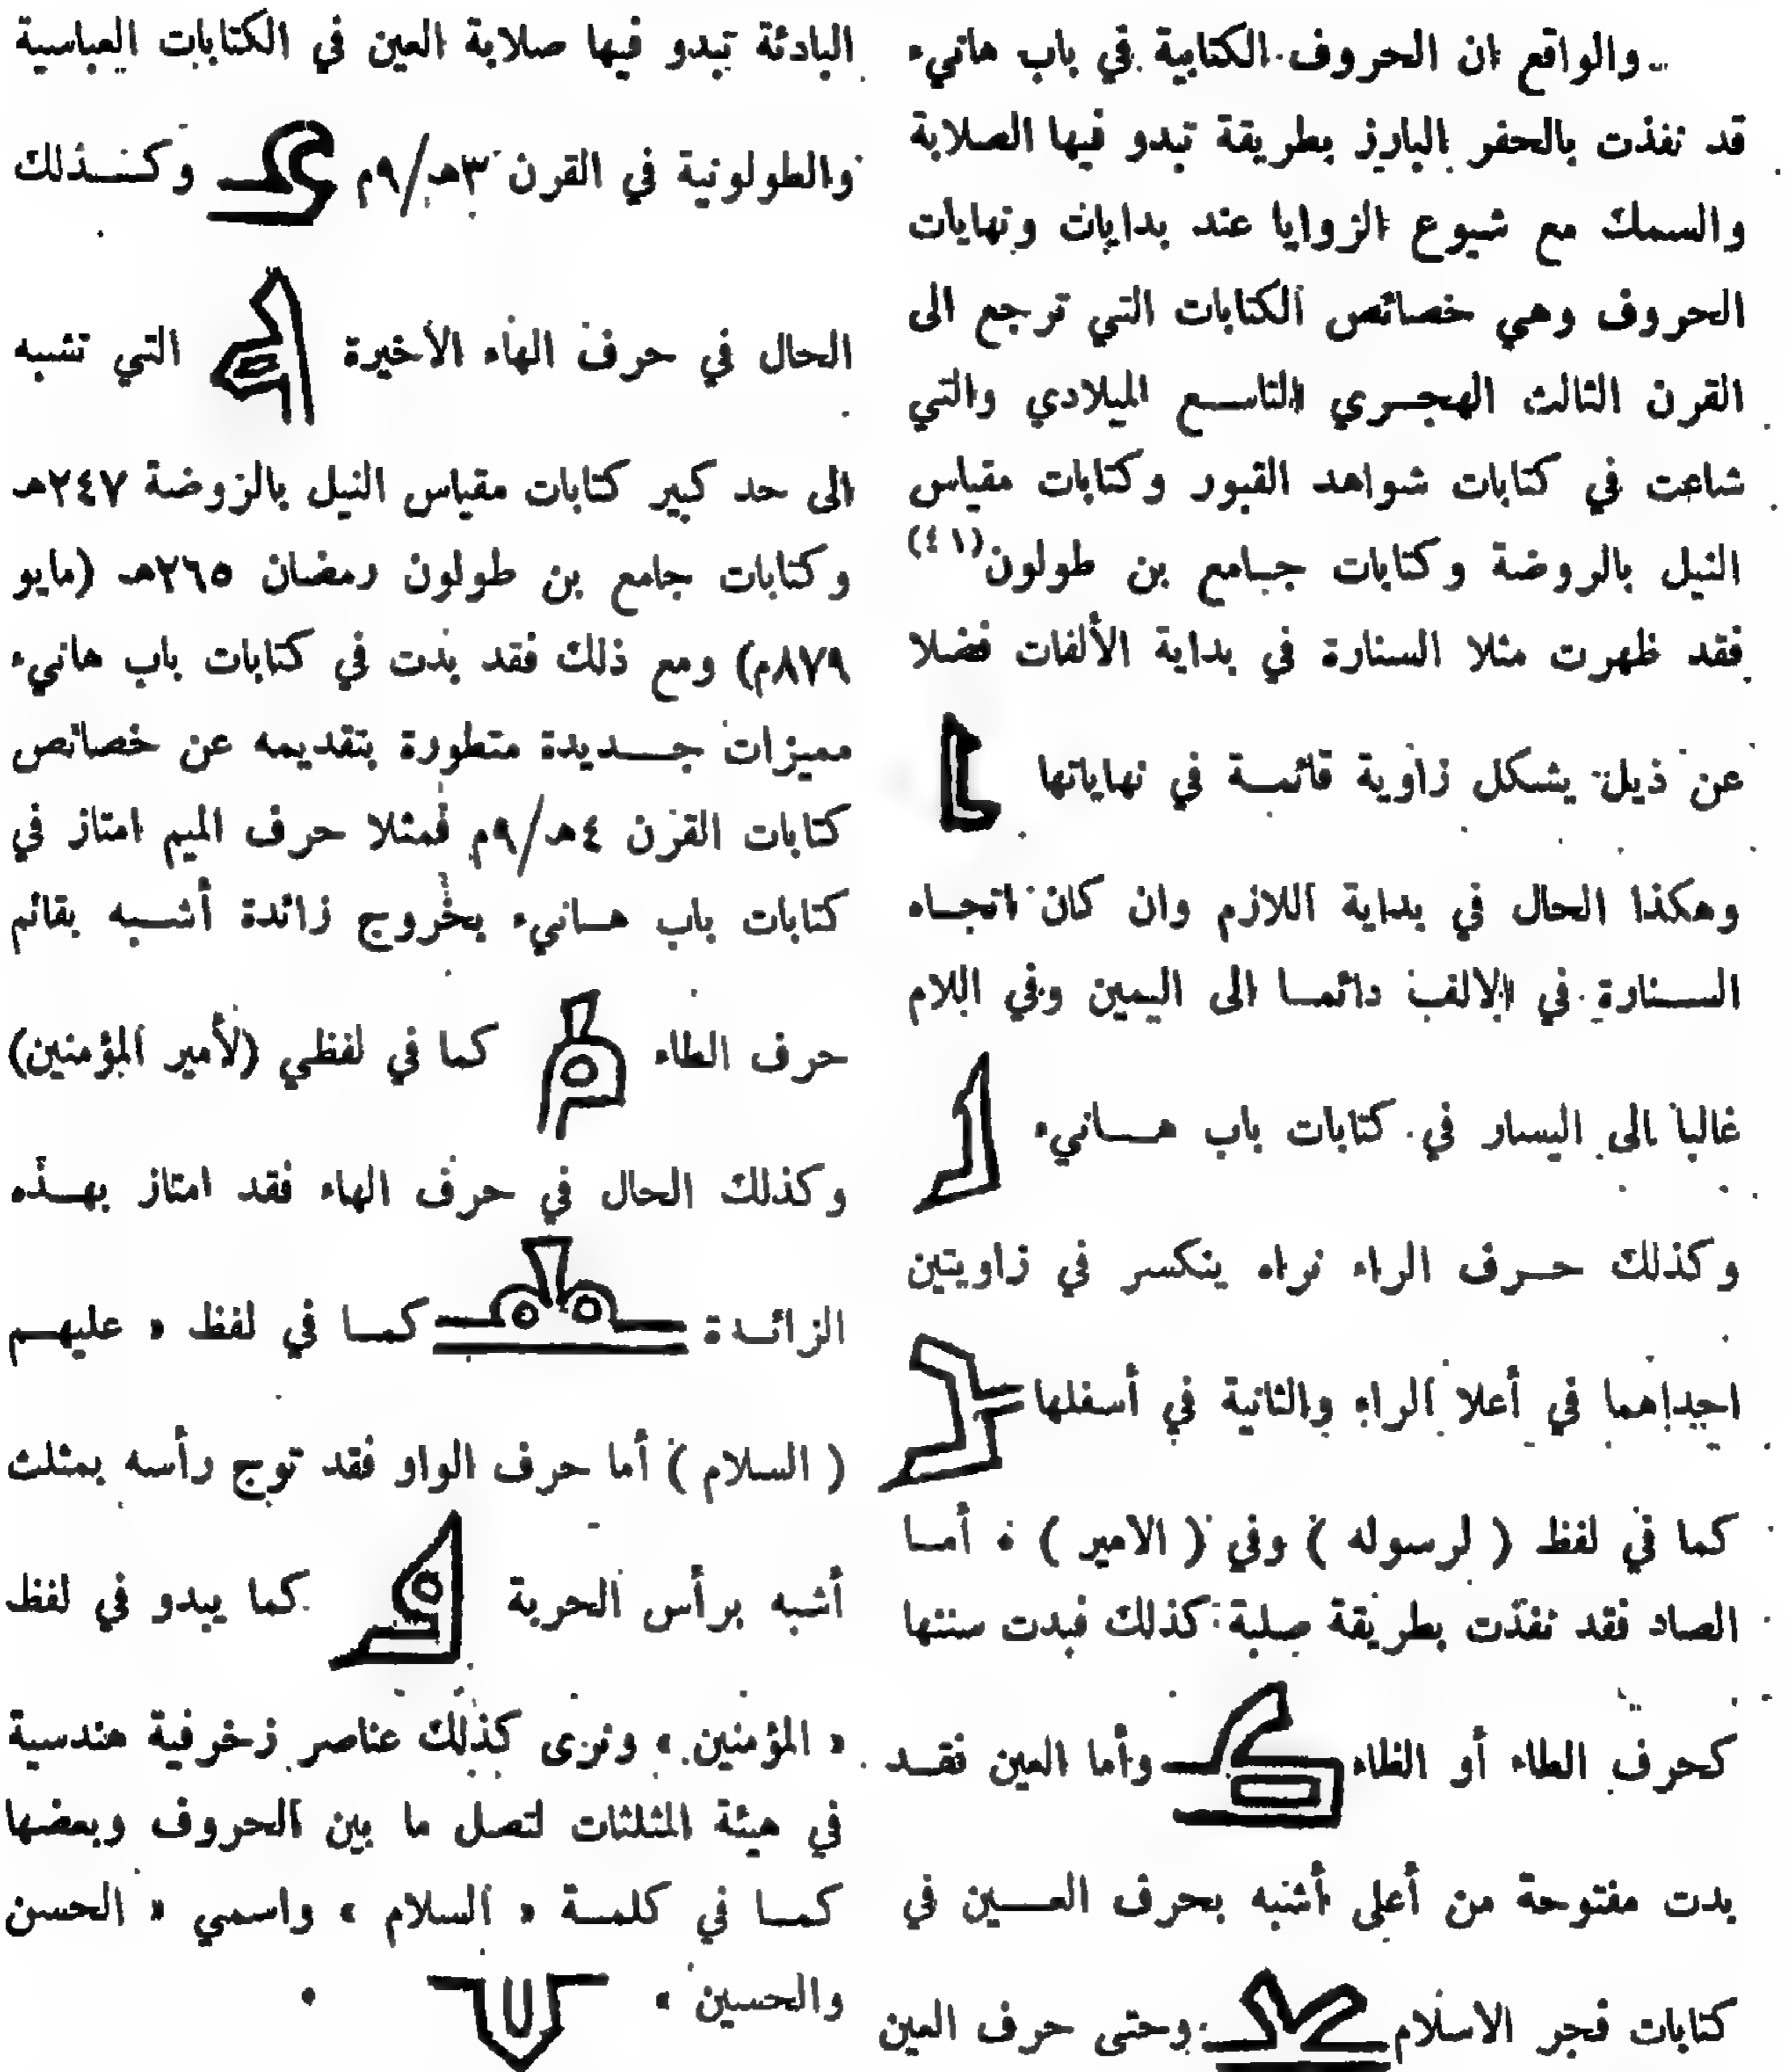 والواقع ان الحروف الكتابية في باب هانيء
قد نفذت بالحفر البارز بطريقة تبدو فيها الصلابة
والسمك مع شيوع الزوايا عند بدايات ونهايات
الحروف وهي خصائص الكتابات التي ترجع الى
القرن الثالث الهجري التاسع الميلادي والتي
شاعت في كتابات شواهد القبور وكتابات مقياس
النيل بالروضة وكتابات جامع بن طولون(٤١)
فقد ظهرت مثلا السنارة في بداية الألفات فضلا
عن ذيل يشكل زاوية قائمة في نهاياتها
وهكذا الحال في بداية اللازم وان كان اتجاه
السنارة في الالف دائما الى اليمين وفي اللام
غالبا الى اليسار في كتابات باب هانيء
وكذلك حرف الراء نراه ينكسر في زاويتين
احداهما في أعلا الراء والثانية في أسفلها
كما في لفظ ( لرسوله ) وفي ( الامير ) ٠ أما
الصاد فقد نفذت بطريقة صلبة كذلك فبدت سنتها
كحرف الطاء أو الظاء وأما العين فقد
بدت مفتوحة من أعلى أشبه بحرف العين في
كتابات فجر الاسلام وحتى حرف العين
البادئة تبدو فيها صلابة العين في الكتابات العباسية
والطولونية في القرن ٣هـ/٩م وكذلك
الحال في حرف الهاء الأخيرة التي تشبه
الى حد كبير كتابات مقياس النيل بالروضة ٢٤٧هـ
وكتابات جامع بن طولون رمضان ٢٦٥هـ (مايو
٨٧٩م) ومع ذلك فقد بدت في كتابات باب هانيء
مميزات جديدة متطورة بتقديمه عن خصائص
كتابات القرن ٤هـ/٩م فمثلا حرف الميم امتاز في
كتابات باب هانيء بخروج زائدة أشبه بقائم
حرف الطاء كما في لفظي (لأمير المؤمنين)
وكذلك الحال في حرف الهاء فقد امتاز بهذه
الزائدة كما في لفظ « عليهم
( السلام ) أما حرف الواو فقد توج رأسه بمثلث
أشبه برأس الحربة كما يبدو في لفظ
« المؤمنين » ونرى كذلك عناصر زخرفية هندسية
في هيئة المثلثات لتصل ما بين الحروف وبعضها
كما في كلمة « السلام » واسمي « الحسن
والحسين » ٠